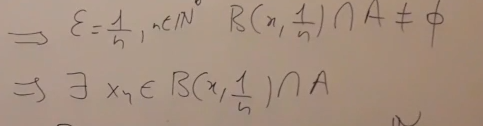 ⇒ ε = 1/n, n∈ℕ° B(x, 1/n) ∩ A ≠ ϕ
⇒ ∃ xₙ ∈ B(x, 1/n) ∩ A